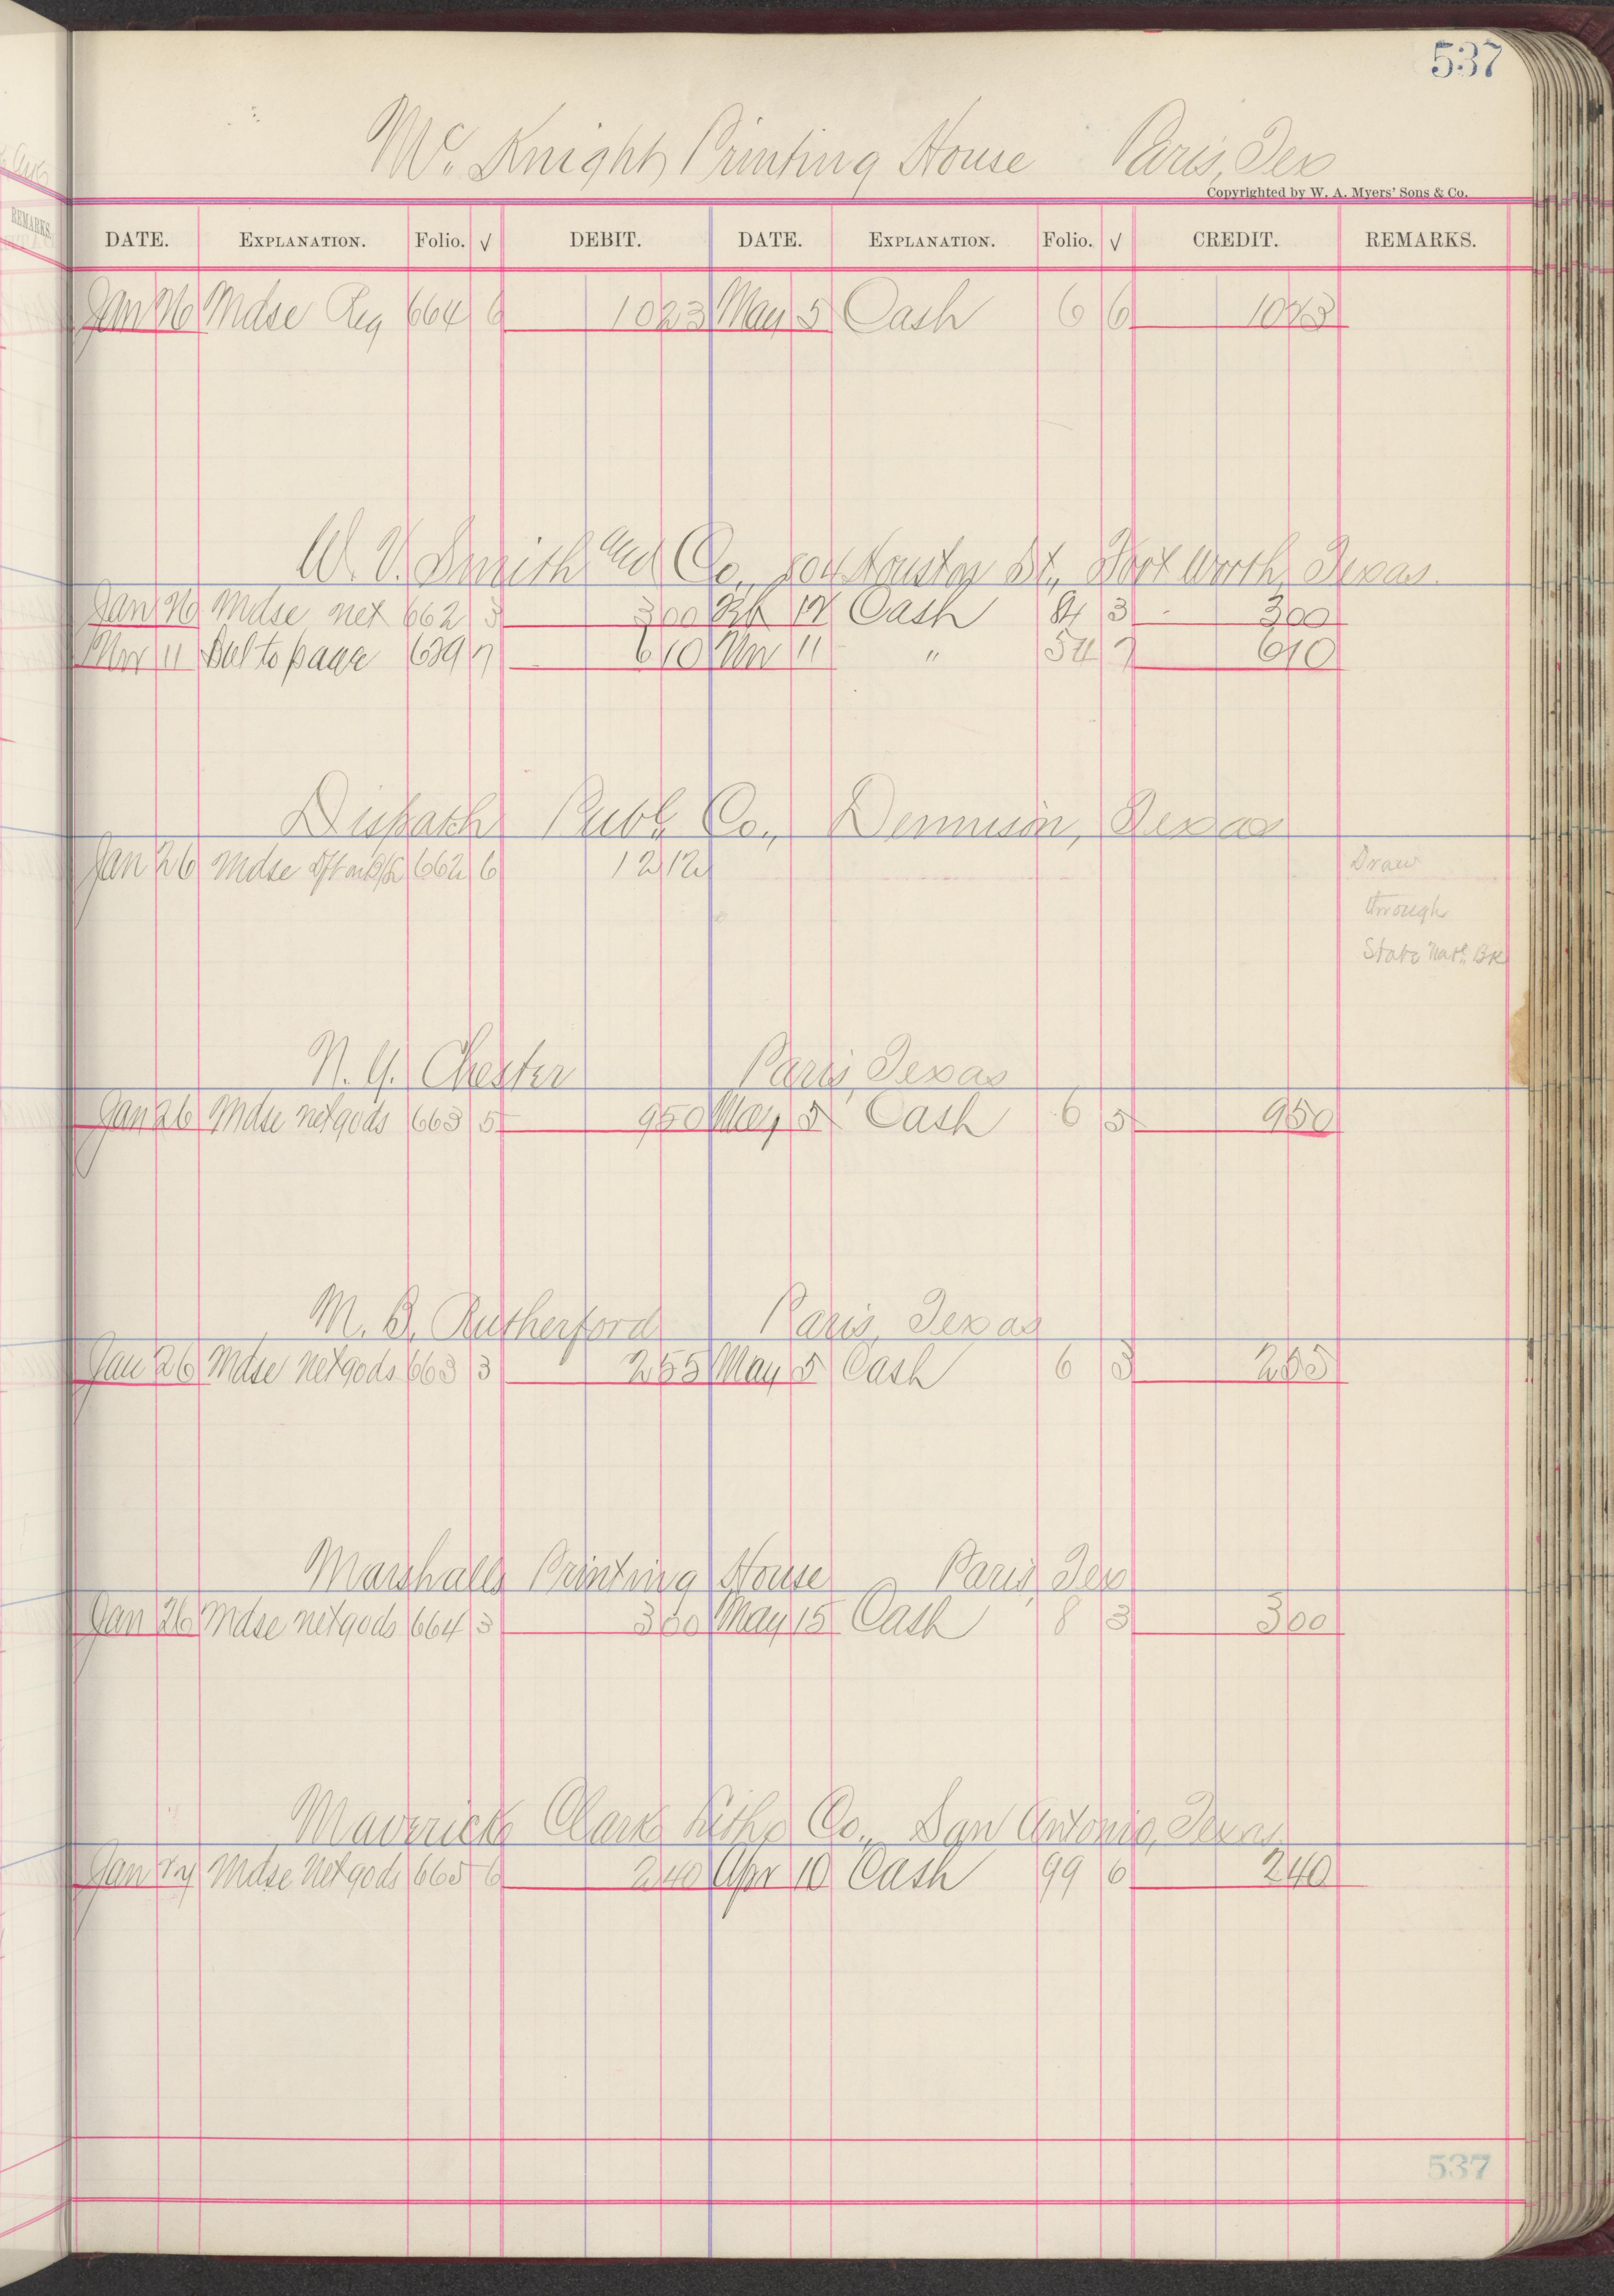 537
Mc. Knight Printing House Paris, Tex
Copyrighted by W. A. Myers' Sons & Co.
DATE. EXPLANATION. Folio. √ DEBIT. DATE. EXPLANATION. Folio. √ CREDIT. REMARKS.
Jan 26 Mdse Reg 664 6 1023 May 5 Cash 6 6 1023
W. V. Smith and Co., 804 Houston St., Fort Worth, Texas.
Jan 26 Mdse net 662 3 300 12 Cash 84 3 300
Mar 11 Bal to page 689 7 610 Mar 11 " 54 7 610
Dispatch Publ. Co., Dennison, Texas
Jan 26 Mdse 662 6 1212 Draw
through
State Natl. Bk
N. Y. Chester Paris, Texas
Jan 26 Mdse net gods 663 5 950 May 5 Cash 6 5 950
M. B. Rutherford Paris, Texas
Jan 26 Mdse net gods 663 3 255 May 5 Cash 6 3 255
Marshalls Printing House Paris, Tex
Jan 26 Mdse net gods 664 3 300 May 15 Cash 8 3 300
Maverick Clark Litho Co., San Antonio, Texas
Jan 24 Mdse net gods 665 6 240 Apr 10 Cash 99 6 240
537